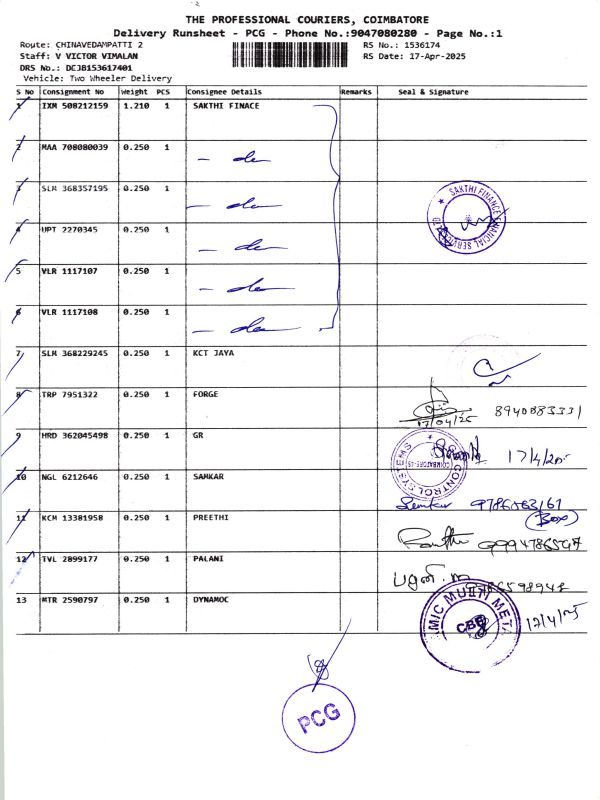 THE PROFESSIONAL COURIERS, COIMBATORE
Delivery Runsheet - PCG - Phone No.:9047080280 - Page No.:1
Route: CHINAVEDAMPATTI 2 RS No.: 1536174
Staff: V VICTOR VIMALAN RS Date: 17-Apr-2025
DRS No.: DCJB153617401
Vehicle: Two Wheeler Delivery
S No Consignment No Weight PCS Consignee Details Remarks Seal & Signature
1 IXM 508212159 1.210 1 SAKTHI FINACE
2 MAA 708080039 0.250 1 - do
3 SLM 368357195 0.250 1 - do
SAKTHI FINANCE FINANCIAL SERVICE
4 UPT 2270345 0.250 1 - do
5 VLR 1117107 0.250 1 - do
6 VLR 1117108 0.250 1 - do
7 SLM 368229245 0.250 1 KCT JAYA
8 TRP 7951322 0.250 1 FORGE
17/04/25 8940883331
9 HRD 362045498 0.250 1 GR 17/4/25
CONTROL SYSTEMS COIMBATORE
10 NGL 6212646 0.250 1 SAMKAR
(Box)
11 KCM 13381958 0.250 1 PREETHI
12 TVL 2899177 0.250 1 PALANI
13 MTR 2590797 0.250 1 DYNAMOC
MIC MULTI META
CBE 17/4/25
PCG